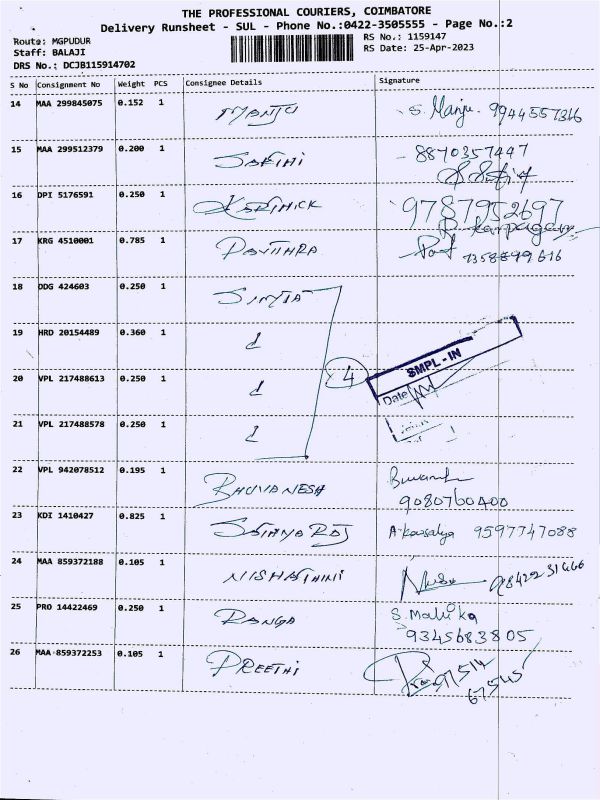 THE PROFESSIONAL COURIERS, COIMBATORE
Delivery Runsheet - SUL - Phone No.:0422-3505555 - Page No.:2
Route: MGPUDUR
RS No.: 1159147
Staff: BALAJI
RS Date: 25-Apr-2023
DRS No.: DCJB115914702
S No Consignment No Weight PCS Consignee Details Signature
14 MAA 299845075 0.152 1 MANJU S. Manju. 9944557316
15 MAA 299512379 0.200 1 SAKTHI 8870357447
16 DPI 5176591 0.250 1 KARTHICK 9787952697
17 KRG 4510001 0.785 1 PAVITHRA 7358899616
18 DDG 424603 0.250 1
19 HRD 20154489 0.360 1
20 VPL 217488613 0.250 1 4 SMPL-IN
Date
21 VPL 217488578 0.250 1
22 VPL 942078512 0.195 1 BHUVANESH
9080760400
23 KDI 1410427 0.825 1 A-kousalya 9597747088
24 MAA 859372188 0.105 1 NISHATHINI
25 PRO 14422469 0.250 1 RANGA S. Malika
9345683805
26 MAA-859372253 0.105 1 PREETHI 97514
67545